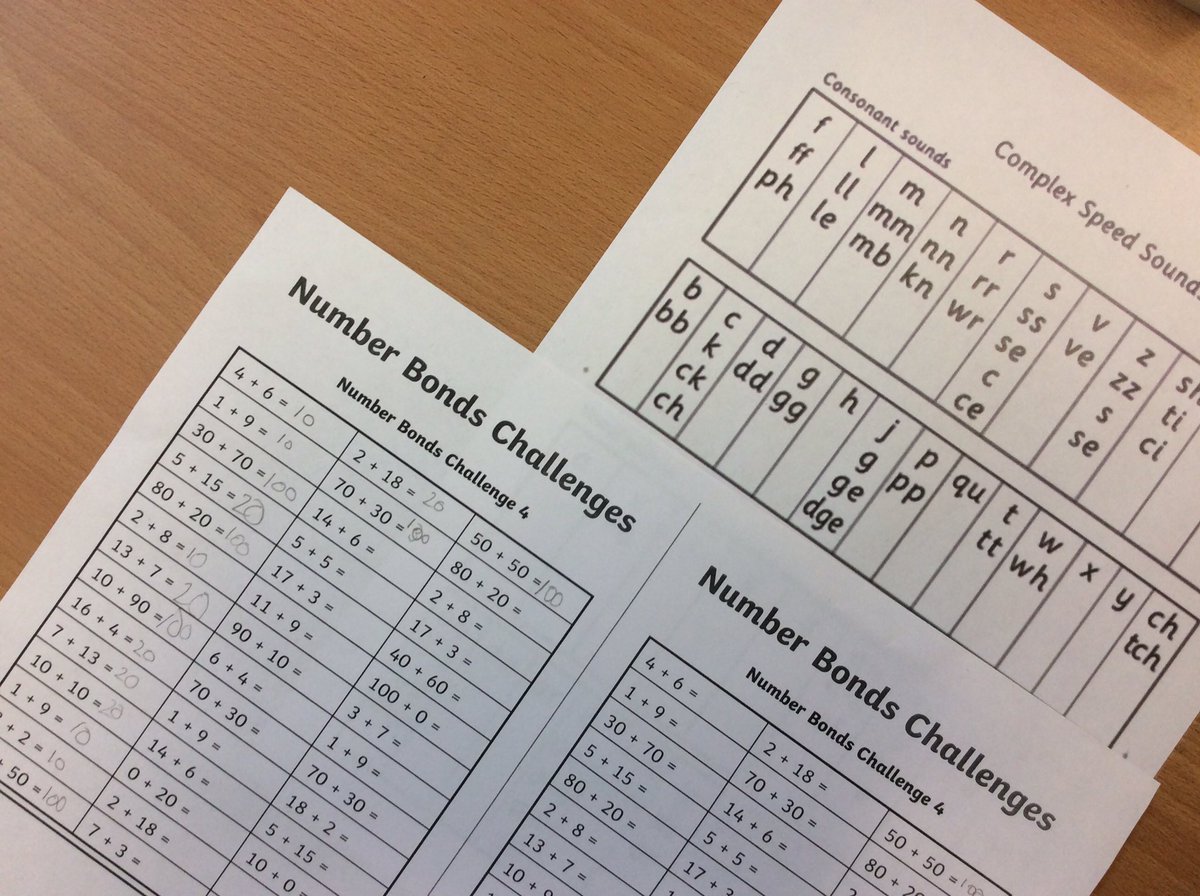 Complex Speed Sounds
Consonant sounds
f l m n r s v z sh
ff ll mm nn rr ss ve zz ti
ph le mb kn wr se s ci
c se
ce
b c d g h j p qu t w x y ch
bb k dd gg g pp tt wh tch
ck ge
ch dge
Number Bonds Challenges
Number Bonds Challenge 4
4 + 6 = 10 2 + 18 = 20 50 + 50 = 100
1 + 9 = 10 70 + 30 = 100 80 + 20 =
30 + 70 = 100 14 + 6 = 2 + 8 =
5 + 15 = 20 5 + 5 = 17 + 3 =
80 + 20 = 100 17 + 3 = 40 + 60 =
2 + 8 = 10 11 + 9 = 100 + 0 =
13 + 7 = 20 90 + 10 = 3 + 7 =
10 + 90 = 100 6 + 4 = 1 + 9 =
16 + 4 = 20 70 + 30 = 70 + 30 =
7 + 13 = 20 1 + 9 = 18 + 2 =
10 + 10 = 20 14 + 6 = 5 + 15 =
1 + 9 = 10 0 + 20 = 10 + 0 =
+ 2 = 10 2 + 18 =
+ 50 = 100 7 + 3 =
Number Bonds Challenges
Number Bonds Challenge 4
4 + 6 = 2 + 18 = 50 + 50 = 100
1 + 9 = 70 + 30 = 80 + 20
30 + 70 = 14 + 6 =
5 + 15 = 5 + 5 =
80 + 20 = 17 + 3
2 + 8 =
13 + 7 =
10 + 9